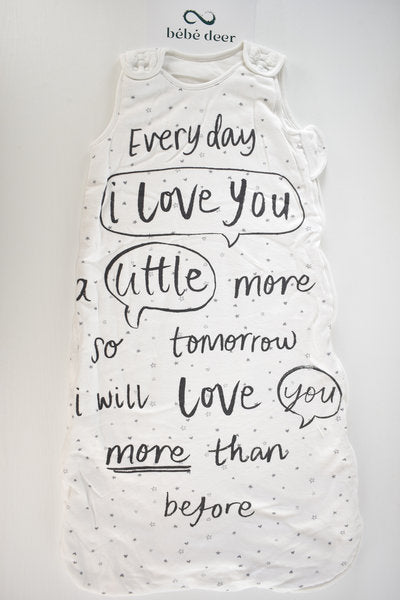 bébé deer
Every day
i love you
a little more
so tomorrow
i will love you
more than
before